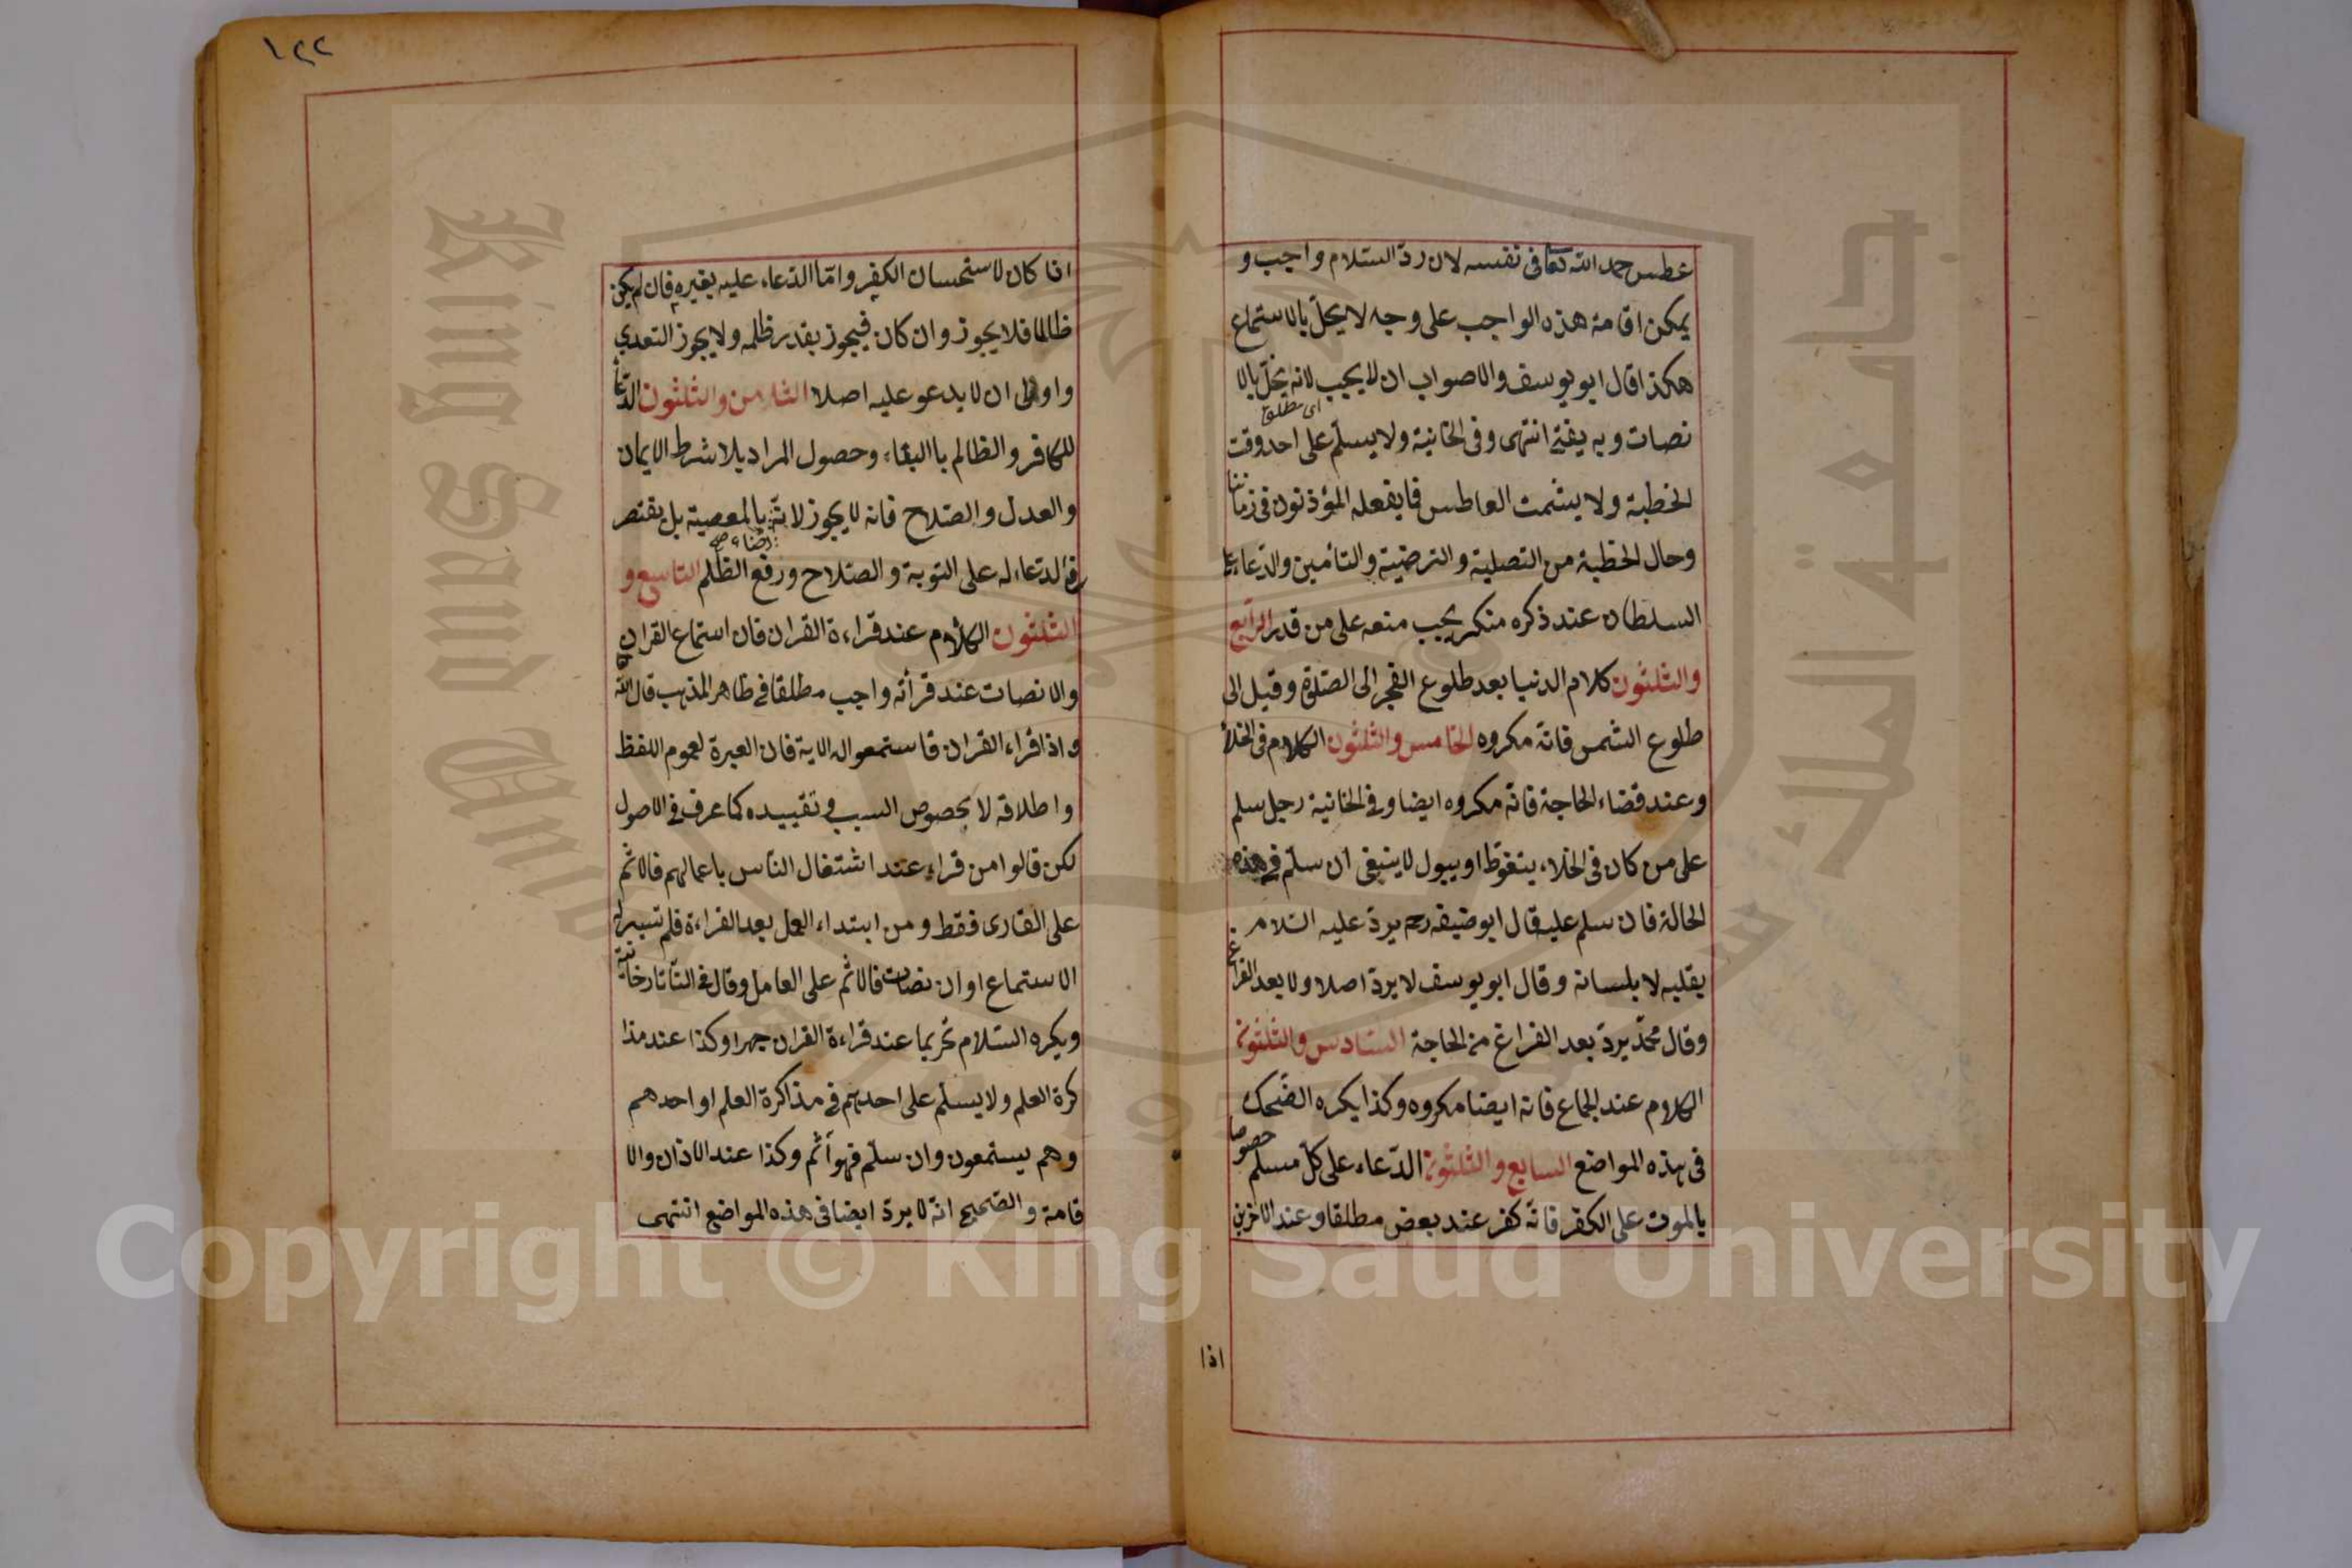 عطس حمد الله تعا فى نفسه لان ردّ السّلام واجب و
يمكن اقامة هذه الواجب على وجه لا يحلّ بالاستماع
هكذا قال ابو يوسف والاصواب ان لا يجيب لانه يخلّ بالا
اى مطلقا
نصات وبه يفتى انتهى وفى الخانية ولا يسلّم على احد وقت
الخطبة ولا يشمت العاطس فما يفعله المؤذنون فى زماننا
وحال الخطبة من التصلية والترضية والتأمين والدّعاء على
السلطان عند ذكره منكر يجب منعه على من قدر الرّابع
والثلثون كلام الدنيا بعد طلوع الفجر الى الصّلوة وقيل الى
طلوع الشمس فانّه مكروه الخامس والثلثون الكلام فى الخلأ
وعند قضاء الحاجة فانّه مكروه ايضا وفى الخانية رجل سلم
على من كان فى الخلاء يتغوّط او يبول لا ينبغى ان سلّم فى هذه
الحالة فان سلم عليه قال ابو حنيفه رحم يردّ عليه السّلام
بقلبه لا بلسانه وقال ابو يوسف لا يردّ اصلا ولا بعد الفراغ
وقال محمّد يردّ بعد الفراغ من الحاجة السّادس والثلثون
الكلام عند الجماع فانه ايضا مكروه وكذا يكره الضّحك
فى هذه المواضع السابع والثلثون الدّعاء على كلّ مسلم خصوصا
بالموت على الكفر فانّه كفر عند بعض مطلقا وعند الآخرين
اذا
١٢٢
اذا كان لاستحسان الكفر وامّا الدّعاء عليه بغيره فان لم يكن
ظالما فلا يجوز وان كان فيجوز بقدر ظلمه ولا يجوز التعدي
واولى ان لا يدعو عليه اصلا الثامن والثلثون الدّعأ
للكافر والظالم باالبقاء وحصول المراد بلا شرط الايمان
والعدل والصّلاح فانه لا يجوز لانّه بالمعصية بل يقتصر
رضاء صح
فى الدّعاء له على التوبة والصّلاح ورفع الظّلم التاسع و
الثلثون الكلام عند قراءة القران فان استماع القران
والانصات عند قرأته واجب مطلقا فى ظاهر المذهب قال الله تعا
واذا قراء القران فاستمعوا له الاية فان العبرة لعموم اللفظ
واطلاقه لا بخصوص السبب وتقييده كما عرف فى الاصول
لكن قالوا من قراء عند اشتغال النّاس باعمالهم فالاثم
على القارى فقط ومن ابتداء العمل بعد القراءة فلم تيسر له
الاستماع او ان نصات فالاثم على العامل وقال فى التّاتارخانية
ويكره السّلام تحريما عند قراءة القران جهرا وكذا عند مذا
كرة العلم ولا يسلّم على احدهم فى مذاكرة العلم او احدهم
وهم يستمعون وان سلّم فهو آثم وكذا عند الاذان والا
قامة والصّحيح انّه لا يردّ ايضا فى هذه المواضع انتهى